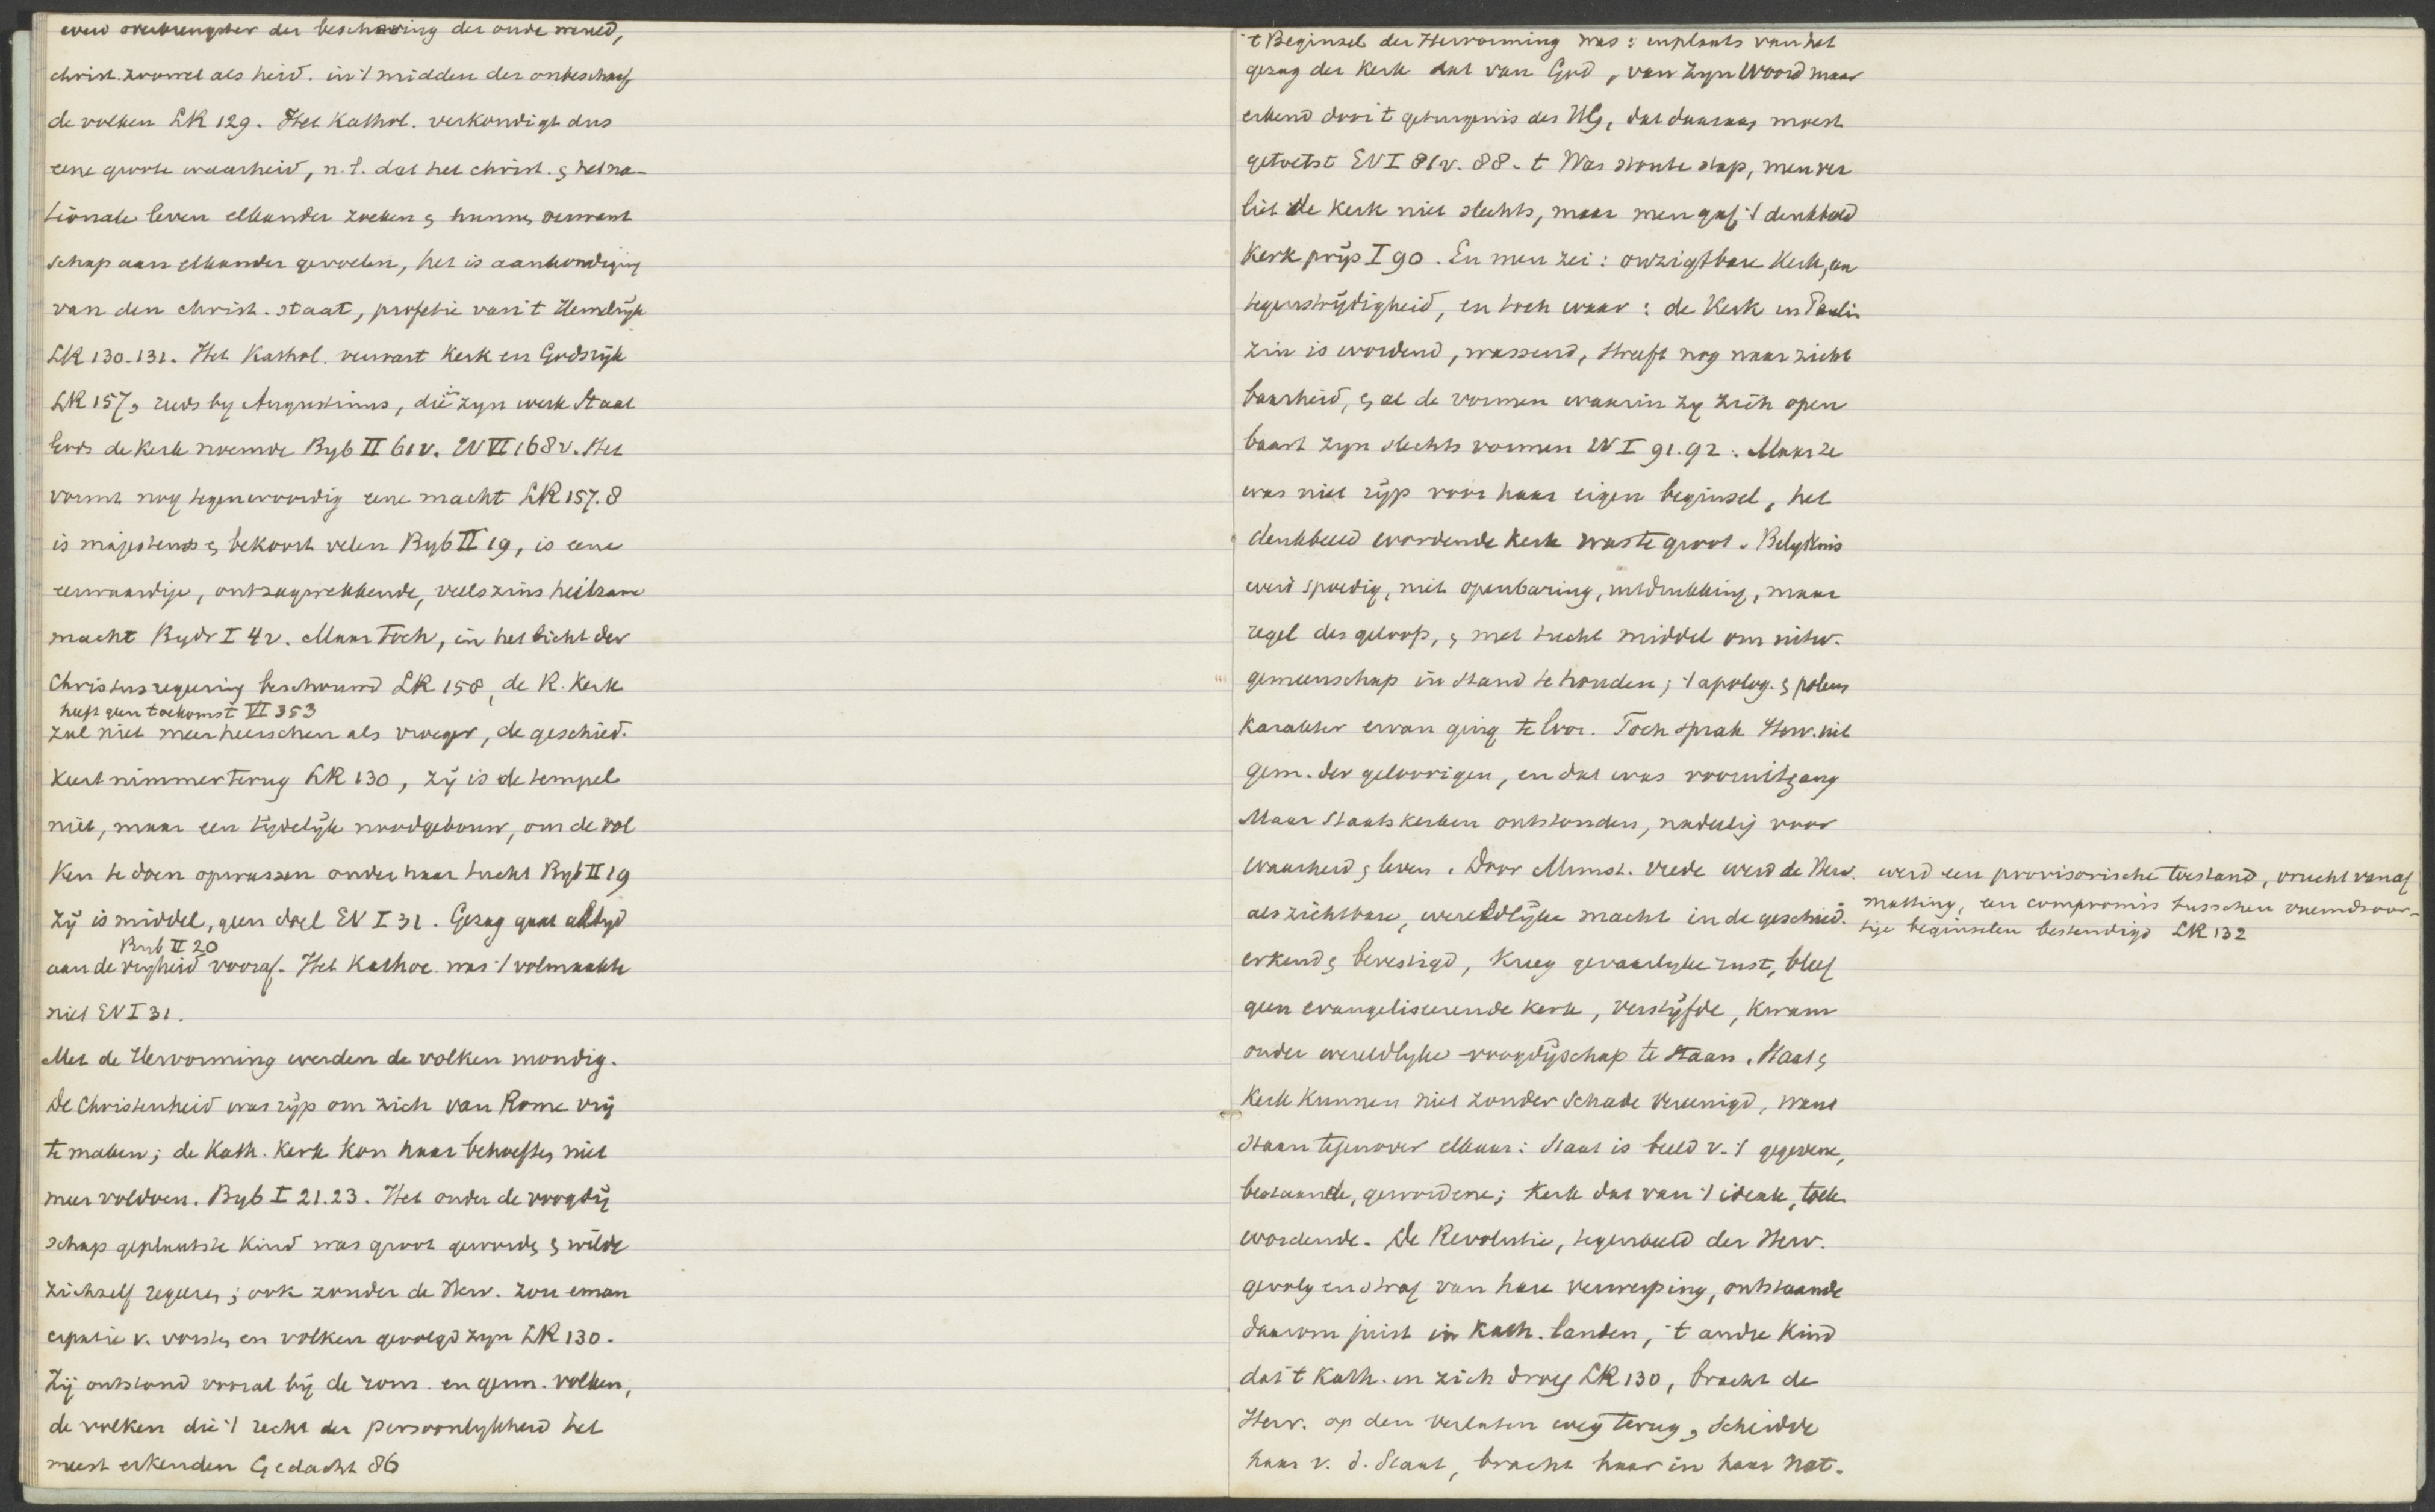 werd overbrengster der beschaving der oude wereld,
christ. zoowel als heid. in 't midden der onbeschaaf
de volken LR 129. Het Kathol. verkondigt dus
eene groote waarheid, n.l. dat het christ. & het na-
tionale leven elkander zoeken & hunne verwant
schap aan elkander gevoelen, het is aankondiging
van den christ. staat, profetie van 't Hemelrijk
LR 130-131. Het Kathol. verwart Kerk en Godsrijk
LR 157, reeds by Augustinus, die in zyn werk Staat
Gods de Kerk noemde Byb II 61v. EV VI 168v. Het
vormt nog tegenwoordig eene macht LR 157.8
is majesteus & bekoort velen Byb II 19, is eene
eerwaardige, ontzagwekkende, veelszins heilzame
macht Bydr I 42. Maar toch, in het licht der
Christusregeering beschouwd LR 158, de R. Kerk
heeft geen toekomst VI 353
zal niet meer heerschen als vroeger, de geschied.
keert nimmer terug LR 130, zij is de tempel
niet, maar een tijdelijk noodgebouw, om de vol
ken te doen opwassen onder haar tucht Byb II 19
Zij is middel, geen doel EV I 31. Gezag gaat altyd
Byb II 20
aan de vryheid vooraf. Het Kathol. was 't volmaakte
niet EV I 31.
Met de Hervorming werden de volken mondig.
De Christenheid was rijp om zich van Rome vrij
te maken; de Kath. Kerk kon haar behoeften niet
meer voldoen. Byb I 21.23. Het onder de voogdij
schap geplaatste Kind was groot geworden & wilde
zichzelf regeeren; ook zonder de Herv. zou eman
cipatie v. vorsten en volken gevolgd zyn LR 130.
Zij ontstond vooral bij de rom. en germ. volken,
de volken die 't recht der persoonlykheid het
meest erkenden Gedacht 86
't Beginsel der Hervorming was: inplaats van het
gezag der Kerk dat van God, van zyn Woord maar
erkend door 't getuigenis des HG, dat daaraan moest
getoetst EV I 86v. 88. 't Was stoute stap, men ver
liet de Kerk niet slechts, maar men gaf 't denkbeeld
Kerk prijs I 90. En men zei: onzigtbare Kerk, een
tegenstrijdigheid, en toch waar: de Kerk in Paulin
zin is wordend, wassend, streeft nog naar zicht
baarheid, & al de vormen waarin zy zich open
baart zyn slechts vormen EV I 91.92. Maar ze
was niet rijp voor haar eigen beginsel, het
denkbeeld wordende Kerk was te groot. Belydenis
werd spoedig, niet openbaring, uitdrukking, maar
regel des geloofs, & met tucht middel om uitw.
gemeenschap in stand te houden; 't apolog. & polem
karakter ervan ging te loor. Toch sprak Herv. uit
gem. der geloovigen, en dat was vooruitgang
Maar Staatskerken ontstonden, nadeelig voor
waarheid & leven. Door Munst. vrede werd de Herv.
als zichtbare, wereldlijke macht in de geschied.
erkend & bevestigd, kreeg gevaarlyke rust, bleef
geen evangeliseerende Kerk, verstijfde, kwam
onder wereldlyke voogdijschap te staan. Staat &
Kerk kunnen niet zonder schade vereenigd, want
staan tegenover elkaar: Staat is beeld v. 't gegevene,
bestaande, gewordene; Kerk dat van 't ideale, toek.
wordende. De Revolutie, tegenbeeld der Herv.
gevolg en straf van hare verwerping, ontstaande
daarom juist in Kath. landen, 't andre Kind
dat 't Kath. in zich droeg LR 130, bracht de
Herv. op den verlaten weg terug, scheidde
haar v. d. Staat, bracht haar in haar nat.
werd een provisorische toestand, vrucht van af
matting, een compromis tusschen vreemdsoor-
tige beginselen bestendigd LR 132